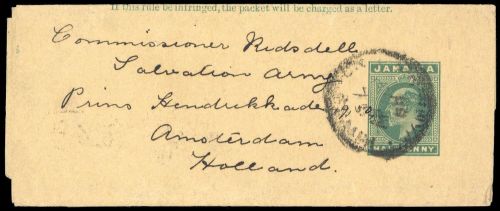 If this rule be infringed, the packet will be charged as a letter.
Commissioner Ridsdell
Salvation Army
Prins Hendrikkade
Amsterdam
Holland.
JAMAICA
HALF PENNY